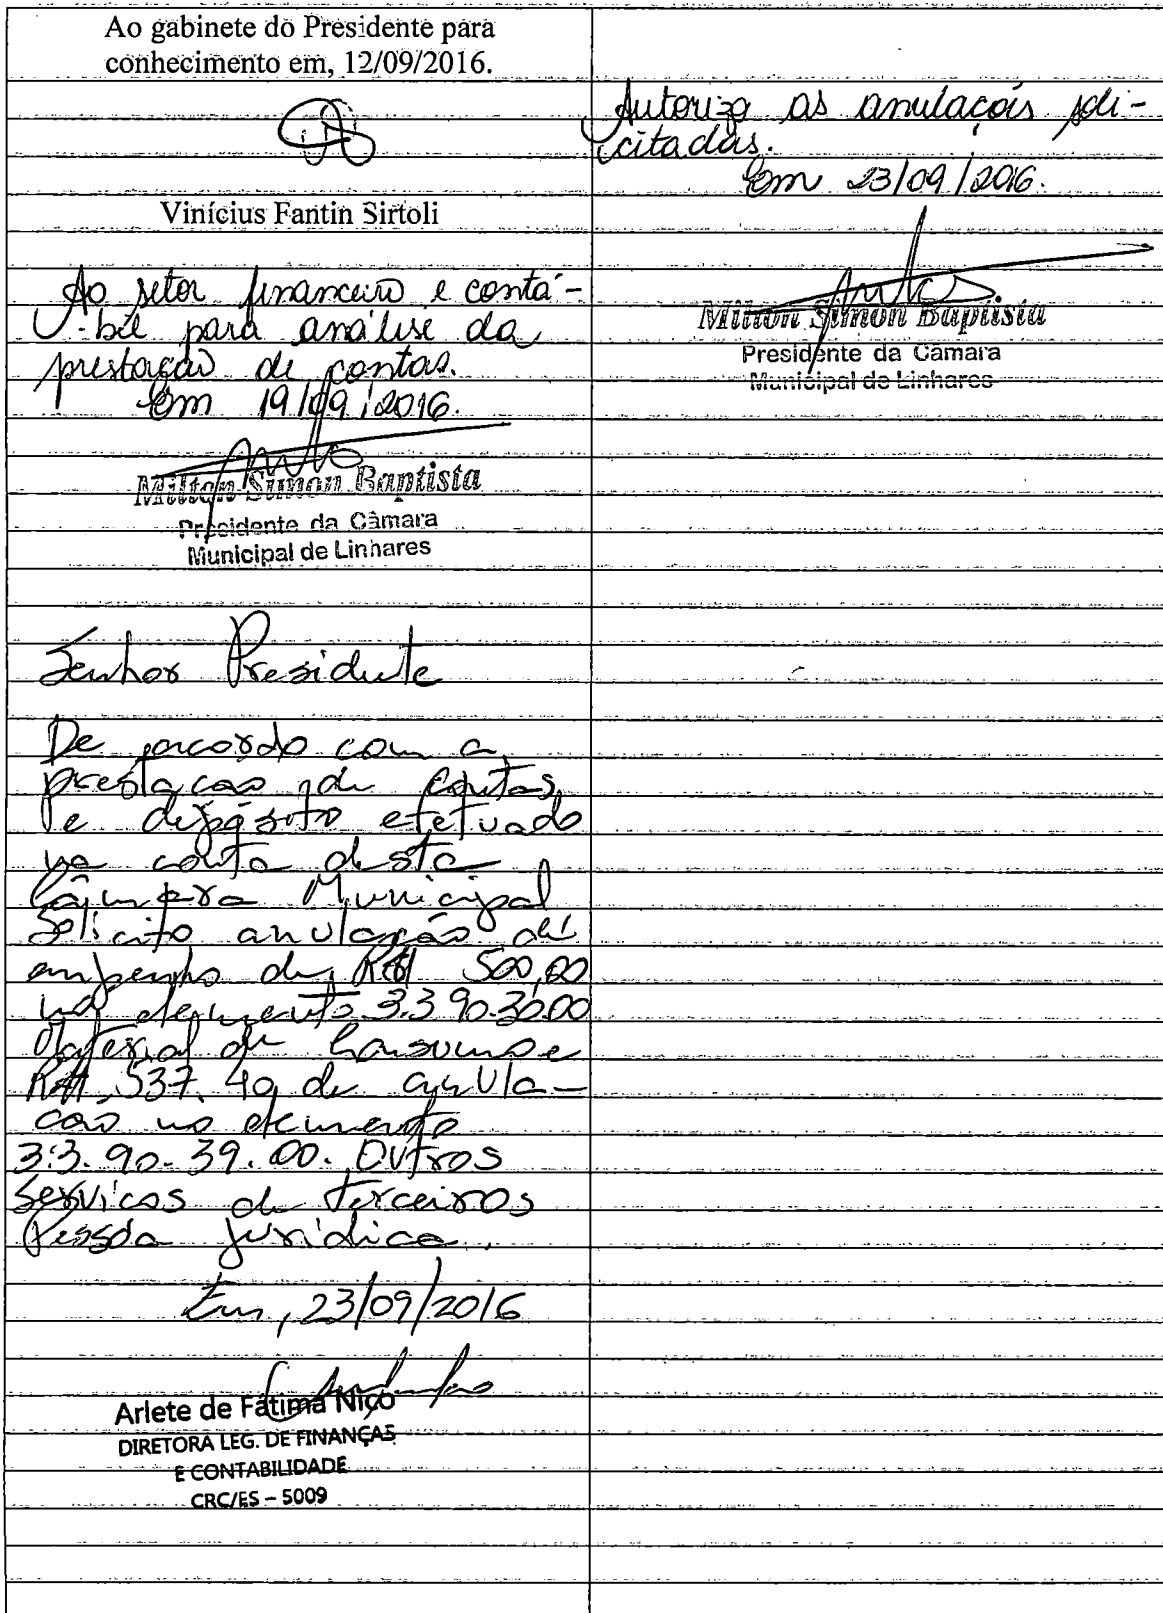 Ao gabinete do Presidente para
conhecimento em, 12/09/2016.
Vinícius Fantin Sirtoli
Ao setor financeiro e contá-
-bil para análise da
prestação de contas.
Em 19/09/2016.
Milton Simon Baptista
Presidente da Câmara
Municipal de Linhares
Senhor Presidente
De acordo com a
prestacao de contas,
e depósito efetuado
na conta desta
Câmara Municipal
Solicito anulação de
empenho de R$ 500,00
no elemento 3.3.90.30.00
Material de Consumo e
R$ 537,40 de anula-
cao no elemento
3.3.90.39.00. Outros
Servicos de Terceiros
Pessoa jurídica.
Em, 23/09/2016
Arlete de Fátima Nico
DIRETORA LEG. DE FINANÇAS
E CONTABILIDADE
CRC/ES – 5009
Autorizo as anulaçois soli-
citadas.
Em 23/09/2016.
Milton Simon Baptista
Presidente da Câmara
Municipal de Linhares